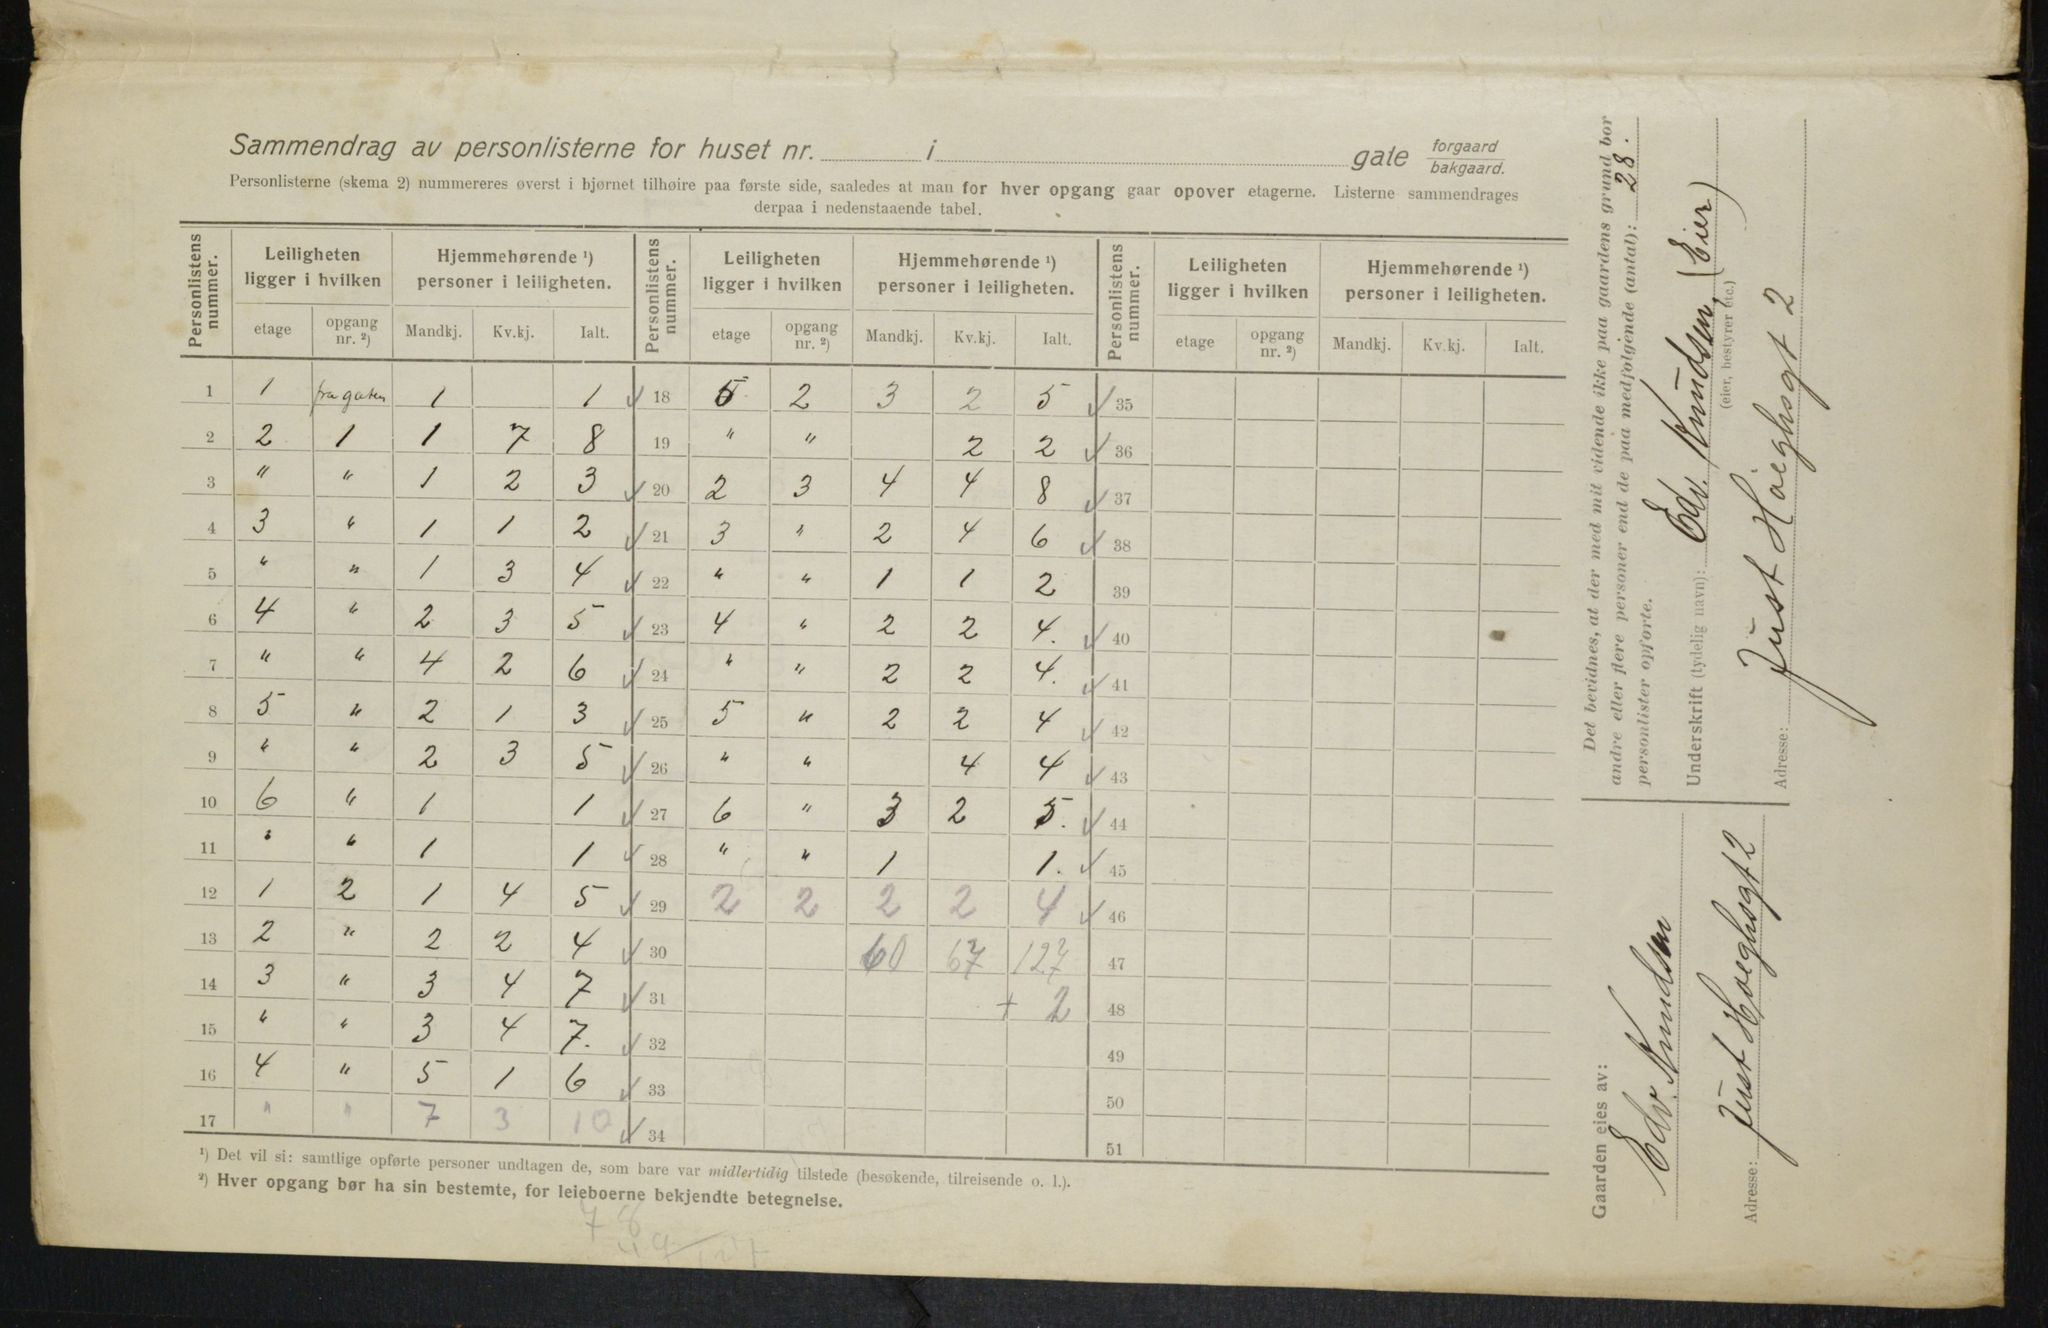 Sammendrag av personlisterne for huset nr. i gate forgaard / bakgaard.
Personlisterne (skema 2) nummereres øverst i hjørnet tilhøire paa første side, saaledes at man for hver opgang gaar opover etagerne. Listerne sammendrages
derpaa i nedenstaaende tabel.
Personlistens nummer. Leiligheten ligger i hvilken Hjemmehørende ¹) personer i leiligheten. Personlistens nummer. Leiligheten ligger i hvilken Hjemmehørende ¹) personer i leiligheten. Personlistens nummer. Leiligheten ligger i hvilken Hjemmehørende ¹) personer i leiligheten.
etage opgang nr. ²) Mandkj. Kv.kj. Ialt. etage opgang nr. ²) Mandkj. Kv.kj. Ialt. etage opgang nr. ²) Mandkj. Kv.kj. Ialt.
1 1 fra gaten 1 1 18 5 2 3 2 5 35
2 2 1 1 7 8 19 " " 2 2 36
3 " " 1 2 3 20 2 3 4 4 8 37
4 3 " 1 1 2 21 3 " 2 4 6 38
5 " " 1 3 4 22 " " 1 1 2 39
6 4 " 2 3 5 23 4 " 2 2 4. 40
7 " " 4 2 6 24 " " 2 2 4. 41
8 5 " 2 1 3 25 5 " 2 2 4 42
9 " " 2 3 5 26 " " 4 4 43
10 6 " 1 1 27 6 " 3 2 5. 44
11 " " 1 1 28 " " 1 1. 45
12 1 2 1 4 5 29 2 2 2 2 4 46
13 2 " 2 2 4 30 60 67 127 47
14 3 " 3 4 7 31 + 2 48
15 " " 3 4 7. 32 49
16 4 " 5 1 6 33 50
17 " " 7 3 10 34 51
¹) Det vil si: samtlige opførte personer undtagen de, som bare var midlertidig tilstede (besøkende, tilreisende o. l.).
²) Hver opgang bør ha sin bestemte, for leieboerne bekjendte betegnelse.
78
49
127
Det bevidnes, at der med mit vidende ikke paa gaardens grund bor
andre eller flere personer end de paa medfølgende (antal): 28.
personlister opførte.
Underskrift (tydelig navn): Edv. Knudsen, (Eier)
(eier, bestyrer etc.)
Adresse: Just Höeghsgt 2
Gaarden eies av:
Edv. Knudsen
Adresse: Just Hoeghsgt 2